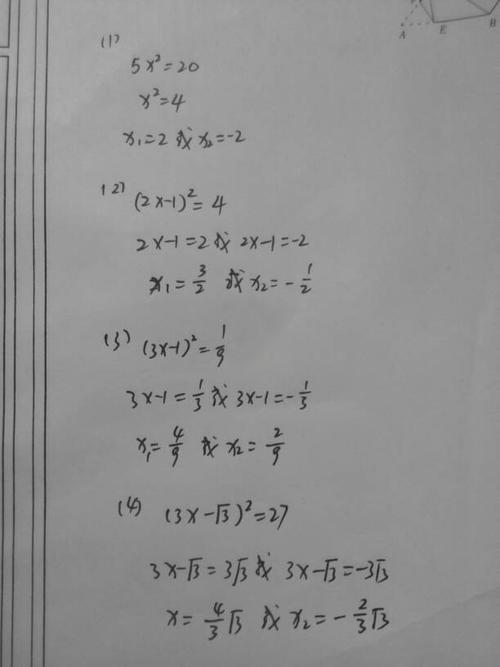 A E B
(1)
5x²=20
x²=4
x₁=2 或 x₂=-2
(2) (2x-1)²=4
2x-1=2 或 2x-1=-2
x₁=3/2 或 x₂=-1/2
(3) (3x-1)²=1/9
3x-1=1/3 或 3x-1=-1/3
x₁=4/9 或 x₂=2/9
(4) (3x-√3)²=27
3x-√3=3√3 或 3x-√3=-3√3
x=4/3√3 或 x₂=-2/3√3